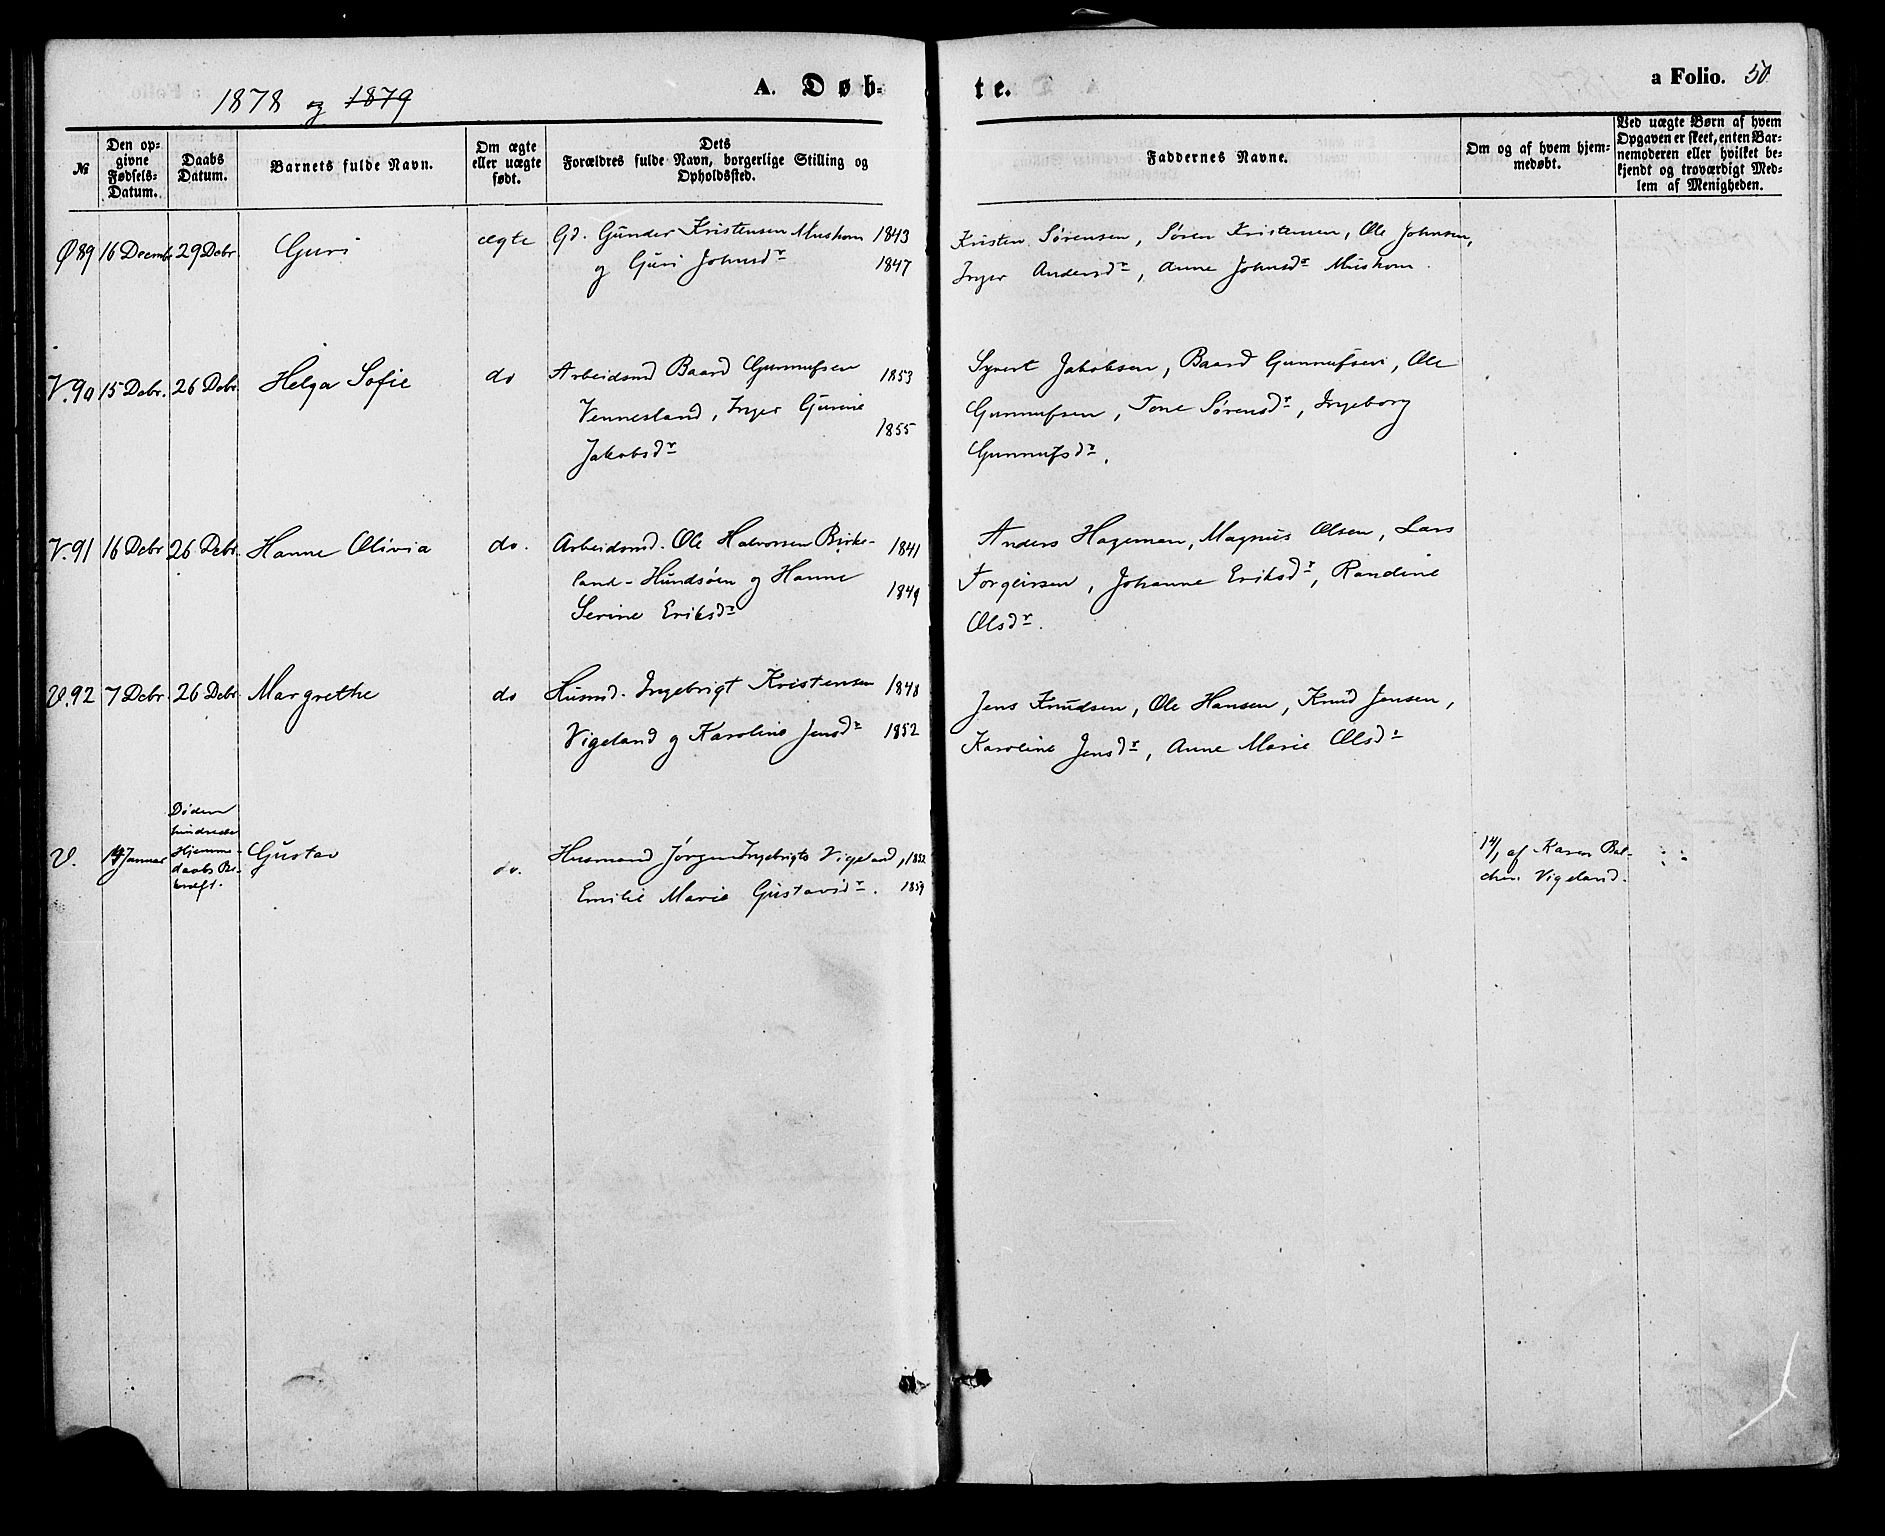 1878 og 1879
A. Døb-
te.
a Folio. 50
№
Den op-
givne
Fødsels-
Datum.
Daabs
Datum.
Barnets fulde Navn.
Om ægte
eller uægte
født.
Dets
Forældres fulde Navn, borgerlige Stilling og
Opholdssted.
Faddernes Navne.
Om og af hvem hjem-
medøbt.
Ved uægte Børn af hvem
Opgaven er skeet, enten Bar-
nemoderen eller hvilket be-
kjendt og troværdigt Med-
lem af Menigheden.
Ø 89 16 Decemb. 29 Debr. Guri ægte Gd. Gunder Kristensen Mushom 1843
og Guri Johnsdr 1847
Kristen Sørensen, Søren Kristensen, Ole Johnsen,
Inger Andersdr, Anne Johnsdr Mushom.
V. 90 15 Debr. 26 Debr. Helga Sofie do Arbeidsmd Baard Gunnufsen 1853
Vennesland, Inger Gurine 1855
Jakobsdr
Syvert Jakobsen, Baard Gunnufsen, Ole
Gunnufsen, Tone Sørensdr, Ingeborg
Gunnufsdr.
V. 91 16 Debr. 26 Debr. Hanne Olivia do. Arbeidsmd. Ole Halvorsen Birke- 1841
land-Hundsøen og Hanne 1849
Serine Eriksdr
Anders Hageman, Magnus Olsen, Lars
Torgeirsen, Johanne Eriksdr, Randine
Olsdr.
V. 92 7 Debr. 26 Debr. Margrethe do Husmd. Ingebrigt Kristensen 1848
Vigeland og Karoline Jensdr 1852
Jens Knudsen, Ole Hansen, Knud Jensen,
Karoline Jensdr, Anne Marie Olsdr
V. 14 Januar
Døden
hindrede
Hjemme-
daabs Be-
kræft.
Gustav do. Husmand Jørgen Ingebrigts Vigeland, 1852
Emilie Marie Gustavsdr. 1859
14/1 af Karen
Vigeland.